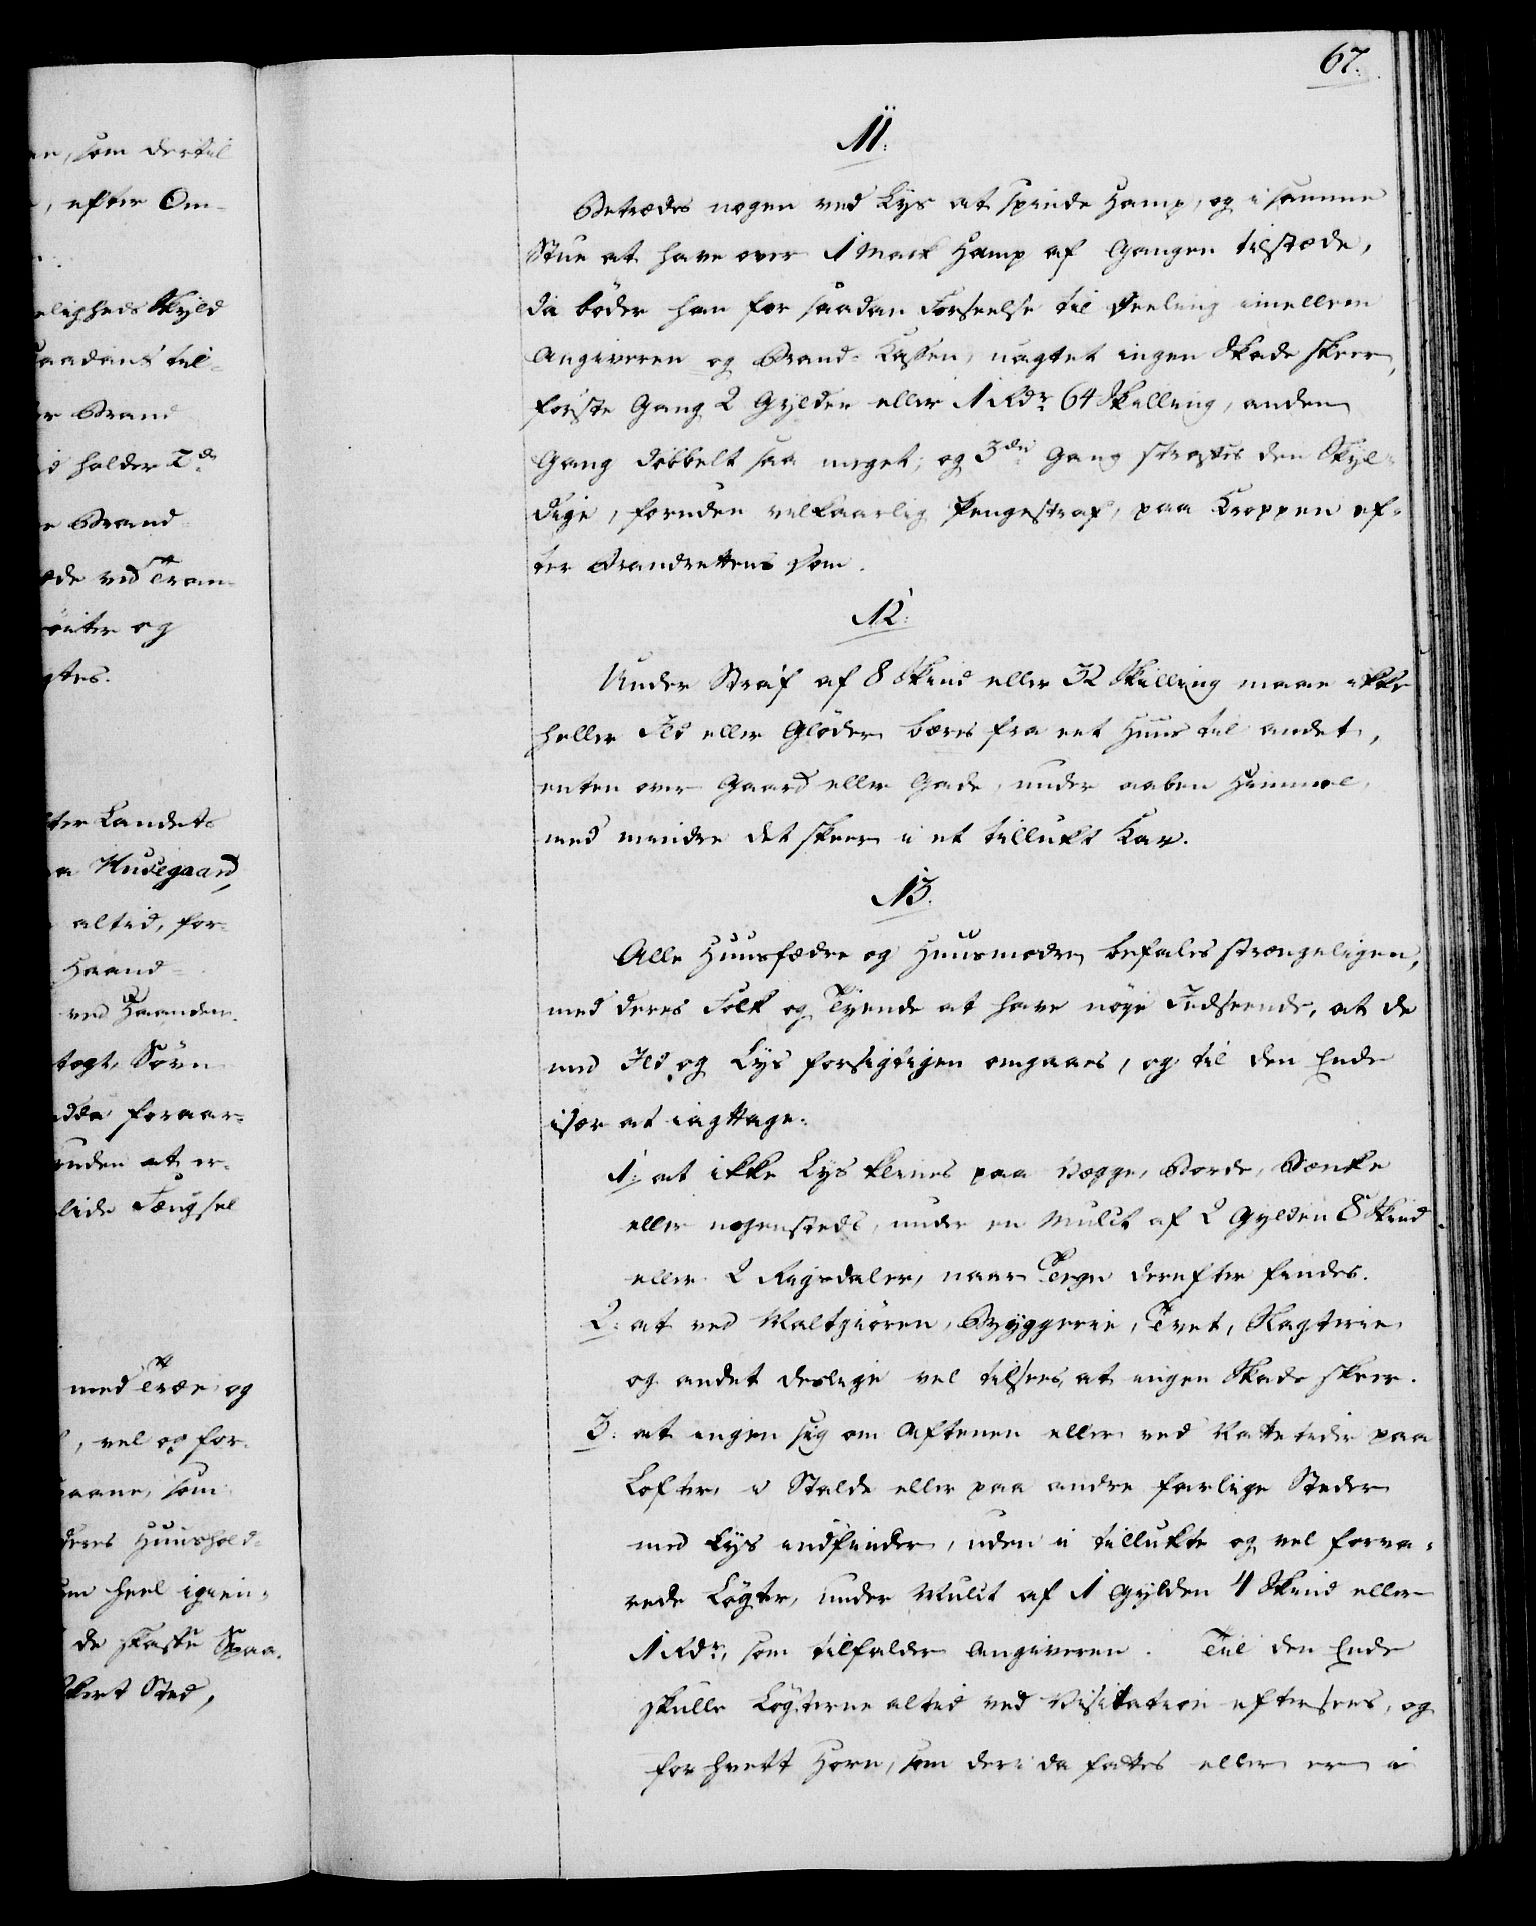 67.
11.
Betrædes nogen ved Lys at spinde Hamp, og i samme
Stue at have over 1 Mark Hamp af Gangen tilstæde,
da böder han for saadan Forseelse til Deeling imellem
Angiveren og Brand-Cassen, uagtet ingen Skade skeer,
förste Gang 2 Gylden eller 1 Rdr 64 Skilling, anden
Gang döbbelt saa meget; og 3de Gang straffes den Skyl-
dige, foruden vilkaarlig Pengestraf, paa Kroppen ef-
ter Brandrettens Dom.
12.
Under Straf af 8 Skind eller 32 Skilling maae ikke
heller Ild eller Glöder bæres fra eet Huus til andet,
enten over Gaard eller Gade, under aaben Himmel,
med mindre det skeer i et tillukt Kar.
13.
Alle Huusfædre og Huusmodre befales strængeligen,
med deres Folk og Tyende at have nöye Indseende, at de
med Ild og Lys forsigtigen omgaaes, og til den Ende
især at iagttage:
1: at ikke Lys klines paa Vægge, Borde, Bænke
eller nogensteds, under en Mulct af 2 Gylden 8 Skind
eller 2 Rigsdaler, naar Tegn derefter findes.
2: at ved Maltgiören, Bryggerie, Tvet, Slagterie
og andet deslige vel tilsees, at ingen Skade skeer.
3: at ingen sig om Aftenen eller ved Nattetider paa
Lofter, i Stalde eller paa andre farlige Steder
med Lys indfinder, uden i tillukte og vel forva-
rede Lögter, under Mulct af 1 Gylden 4 Skind eller
1 Rdr, som tilfalder Angiveren. Til den Ende
skulle Lögterne altid ved Visitation eftersees, og
for hvert Horn, som der i da fattes eller er i
en, som dertil
, efter Om-
eligheds Skyld
saadant til-
er Brand
id holder 2de
e Brand-
æde ved Tran-
öiter og
gtes.
ter Landets
a Hudegaard,
altid, for-
Haand-
ved Haanden.
togt, Sörn
foraar-
enden at er-
lide Fængsel
med Træe, og
, vel op for-
som
deres Huushold-
um heel igien-
de skaffe Spaa-
kert Sted,